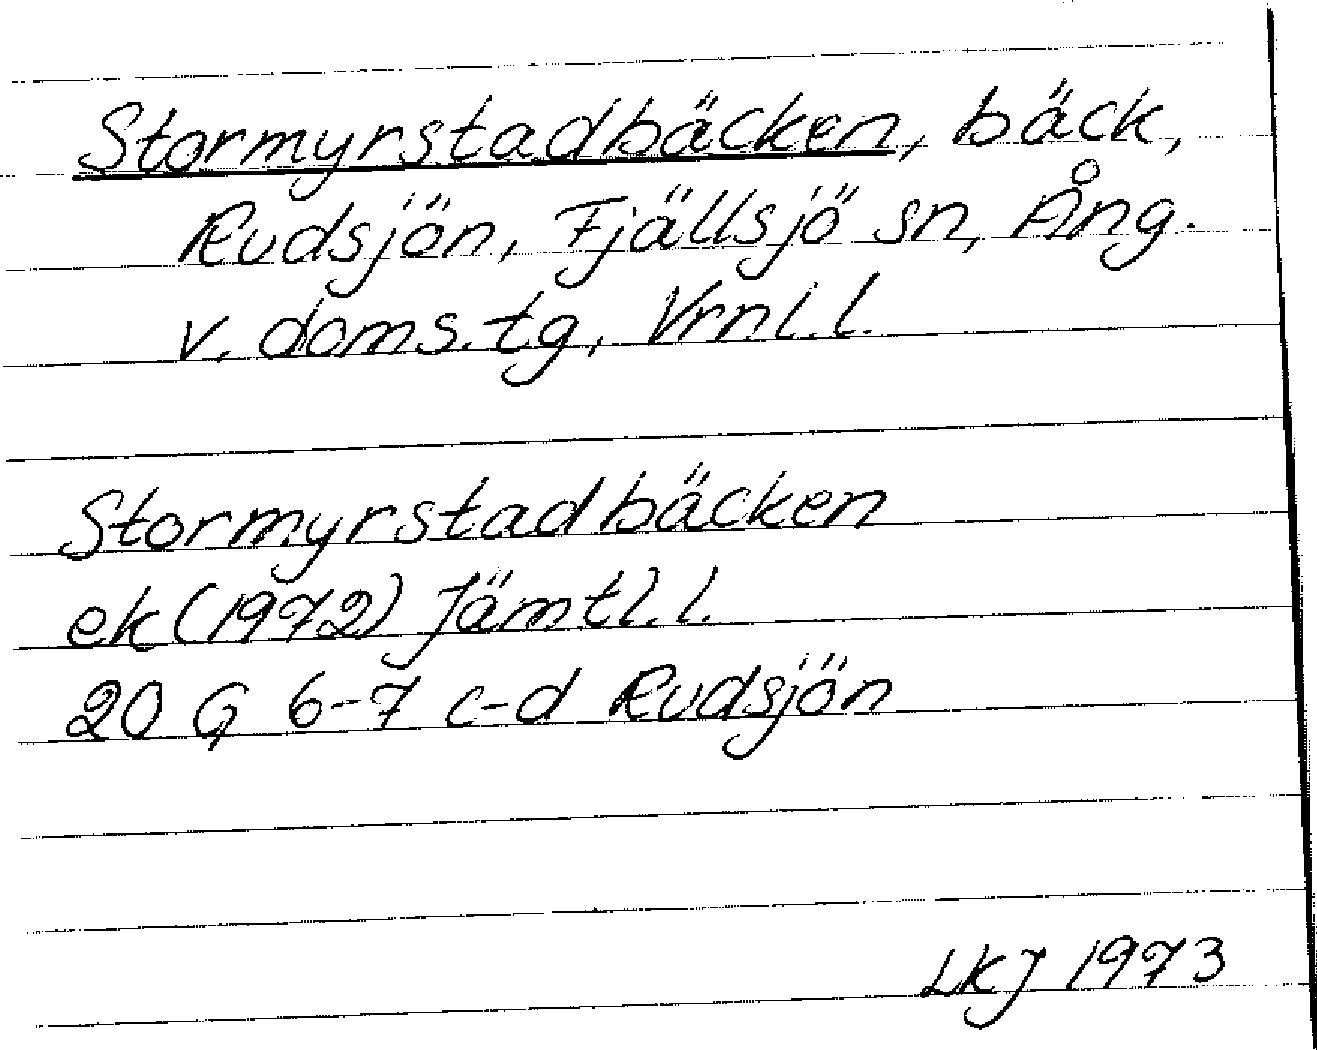 Stormyrstadbäcken, bäck,
Rudsjön, Fjällsjö sn, Ång.
v. doms.tg, Vrnl.l.
Stormyrstadbäcken
ek (1972) Jämtl.l.
20 G 6-7 c-d Rudsjön
LKJ 1973